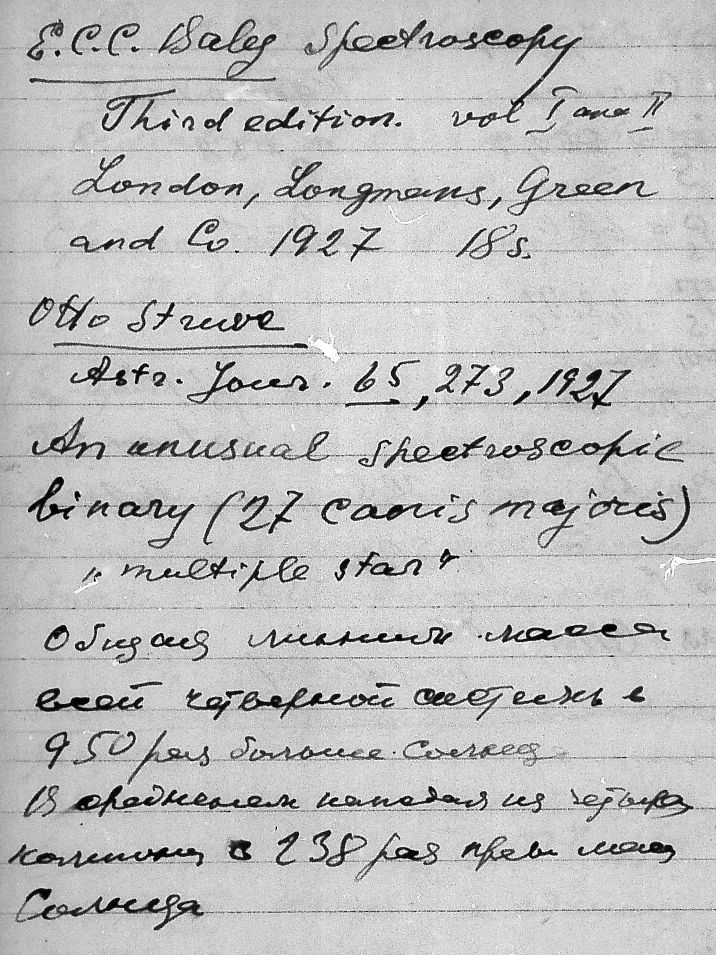 E.C.C. Baly Spectroscopy
Third edition. vol I and II
London, Longmans, Green
and Co. 1927 18s.
Otto Struve
Astr. Jour. 65, 273, 1927
An unusual spectroscopic
binary (27 canis majoris)
„multiple star"
Общая масса
всей четверной системы в
950 раз больше Солнца
В среднем каждая из четырех
в 238 раз прев. массу
Солнца